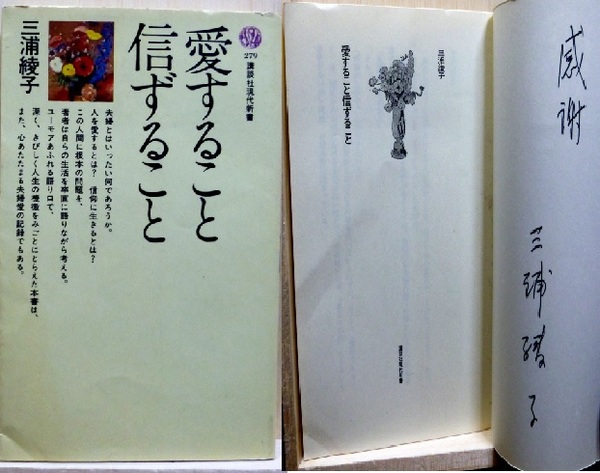 愛すること
信ずること
三浦綾子
279
講談社現代新書
夫婦とはいったい何であろうか。
人を愛するとは？　信仰に生きるとは？
この人間に根本の問題を、
著者は自らの生活を率直に語りながら考える。
ユーモアあふれる語り口で、
深く、きびしく人生の機微をみごとにとらえた本書は、
また、心あたたまる夫婦愛の記録でもある。
三浦綾子
愛すること信ずること
講談社現代新書
感謝
三浦綾子